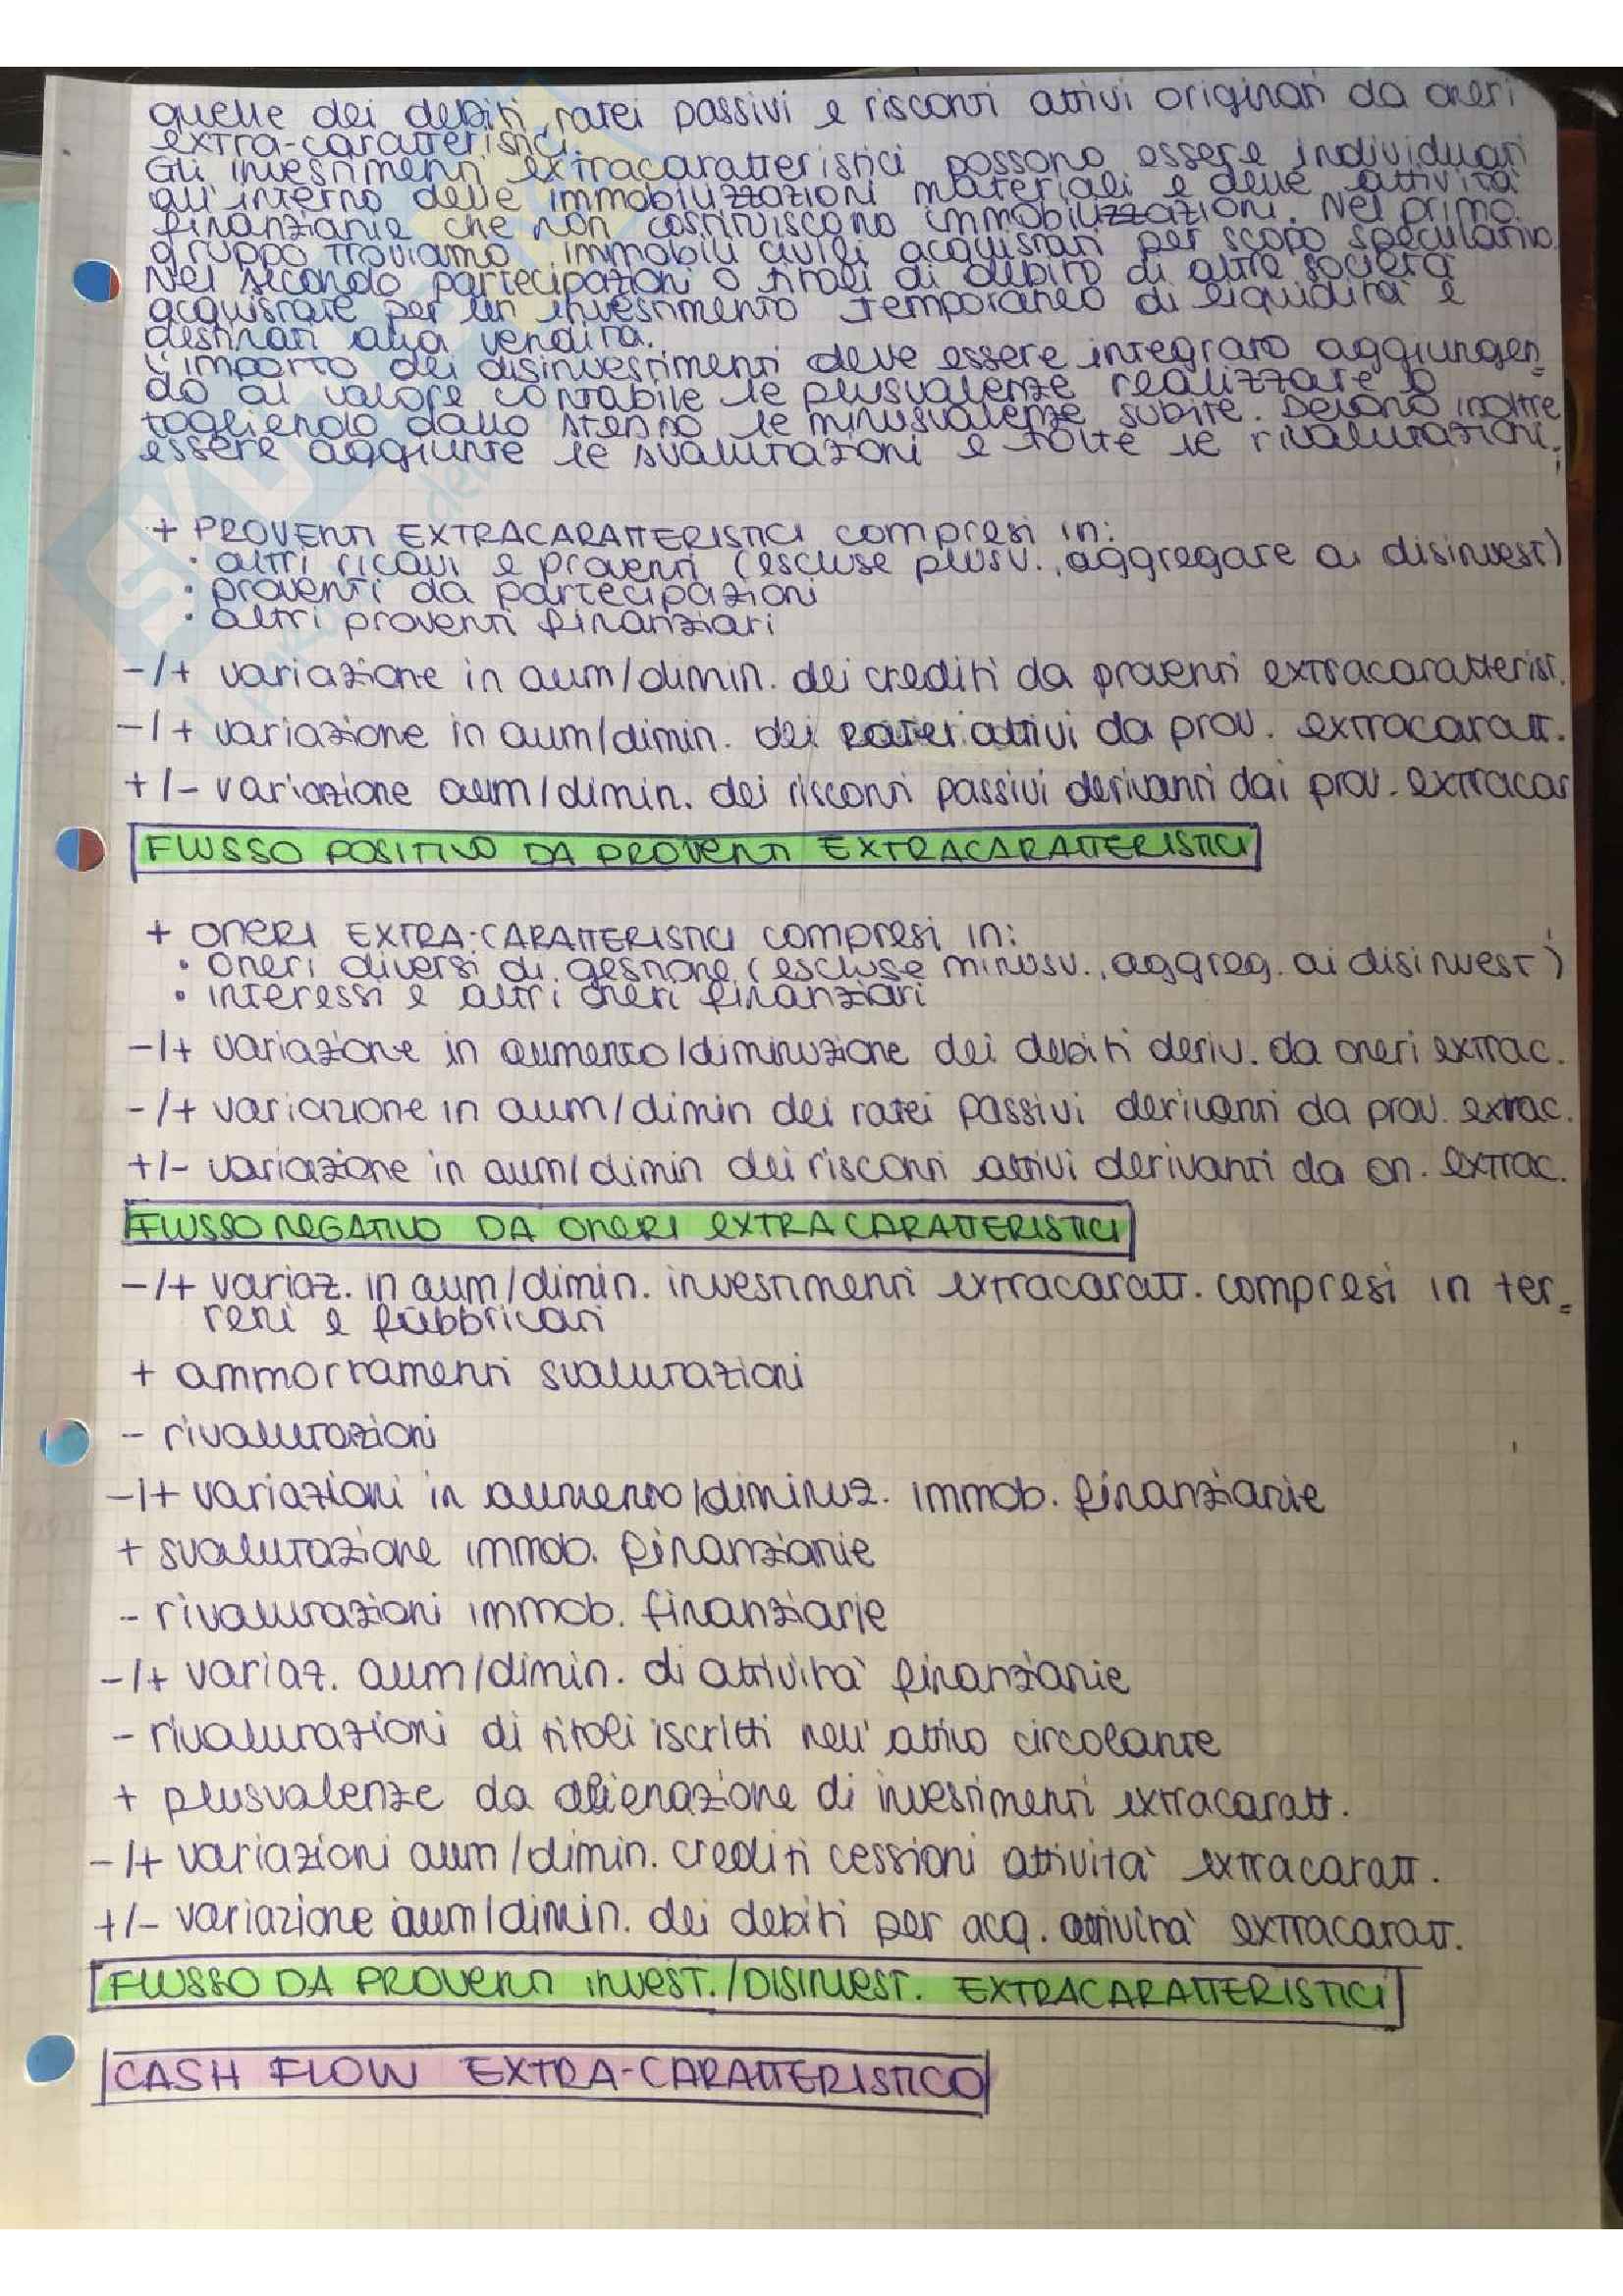 quelle dei debiti, ratei passivi e risconti attivi originati da oneri
extra-caratteristici.
Gli investimenti extracaratteristici possono essere individuati
all'interno delle immobilizzazioni materiali e delle attività
finanziarie che non costituiscono immobilizzazioni. Nel primo
gruppo troviamo immobili civili acquistati per scopo speculativo.
Nel secondo partecipazioni o titoli di debito di altre società
acquistate per un investimento temporaneo di liquidità e
destinati alla vendita.
L'importo dei disinvestimenti deve essere integrato aggiungen=
do al valore contabile le plusvalenze realizzate o
togliendo dallo stesso le minusvalenze subite. Devono inoltre
essere aggiunte le svalutazioni e tolte le rivalutazioni;
+ PROVENTI EXTRACARATTERISTICI compresi in:
• altri ricavi e proventi (escluse plusv., aggregate ai disinvest)
• proventi da partecipazioni
• altri proventi finanziari
-/+ variazione in aum/dimin. dei crediti da proventi extracaratterist.
-/+ variazione in aum/dimin. dei ratei attivi da prov. extracaratt.
+/- variazione aum/dimin. dei risconti passivi derivanti dai prov. extracar
FLUSSO POSITIVO DA PROVENTI EXTRACARATTERISTICI
+ ONERI EXTRA-CARATTERISTICI compresi in:
• oneri diversi di gestione (escluse minusv., aggreg. ai disinvest)
• interessi e altri oneri finanziari
-/+ variazione in aumento/diminuzione dei debiti deriv. da oneri extrac.
-/+ variazione in aum/dimin dei ratei passivi derivanti da prov. extrac.
+/- variazione in aum/dimin dei risconti attivi derivanti da on. extrac.
FLUSSO NEGATIVO DA ONERI EXTRACARATTERISTICI
-/+ variaz. in aum/dimin. investimenti extracaratt. compresi in ter=
reni e fabbricati
+ ammortamenti svalutazioni
- rivalutazioni
-/+ variazioni in aumento/diminuz. immob. finanziarie
+ svalutazione immob. finanziarie
- rivalutazioni immob. finanziarie
-/+ variaz. aum/dimin. di attività finanziarie
- rivalutazioni di titoli iscritti nell'attivo circolante
+ plusvalenze da alienazione di investimenti extracaratt.
-/+ variazioni aum/dimin. crediti cessioni attività extracaratt.
+/- variazione aum/dimin. dei debiti per acq. attività extracaratt.
FLUSSO DA PROVENTI INVEST./DISINVEST. EXTRACARATTERISTICI
CASH FLOW EXTRA-CARATTERISTICO